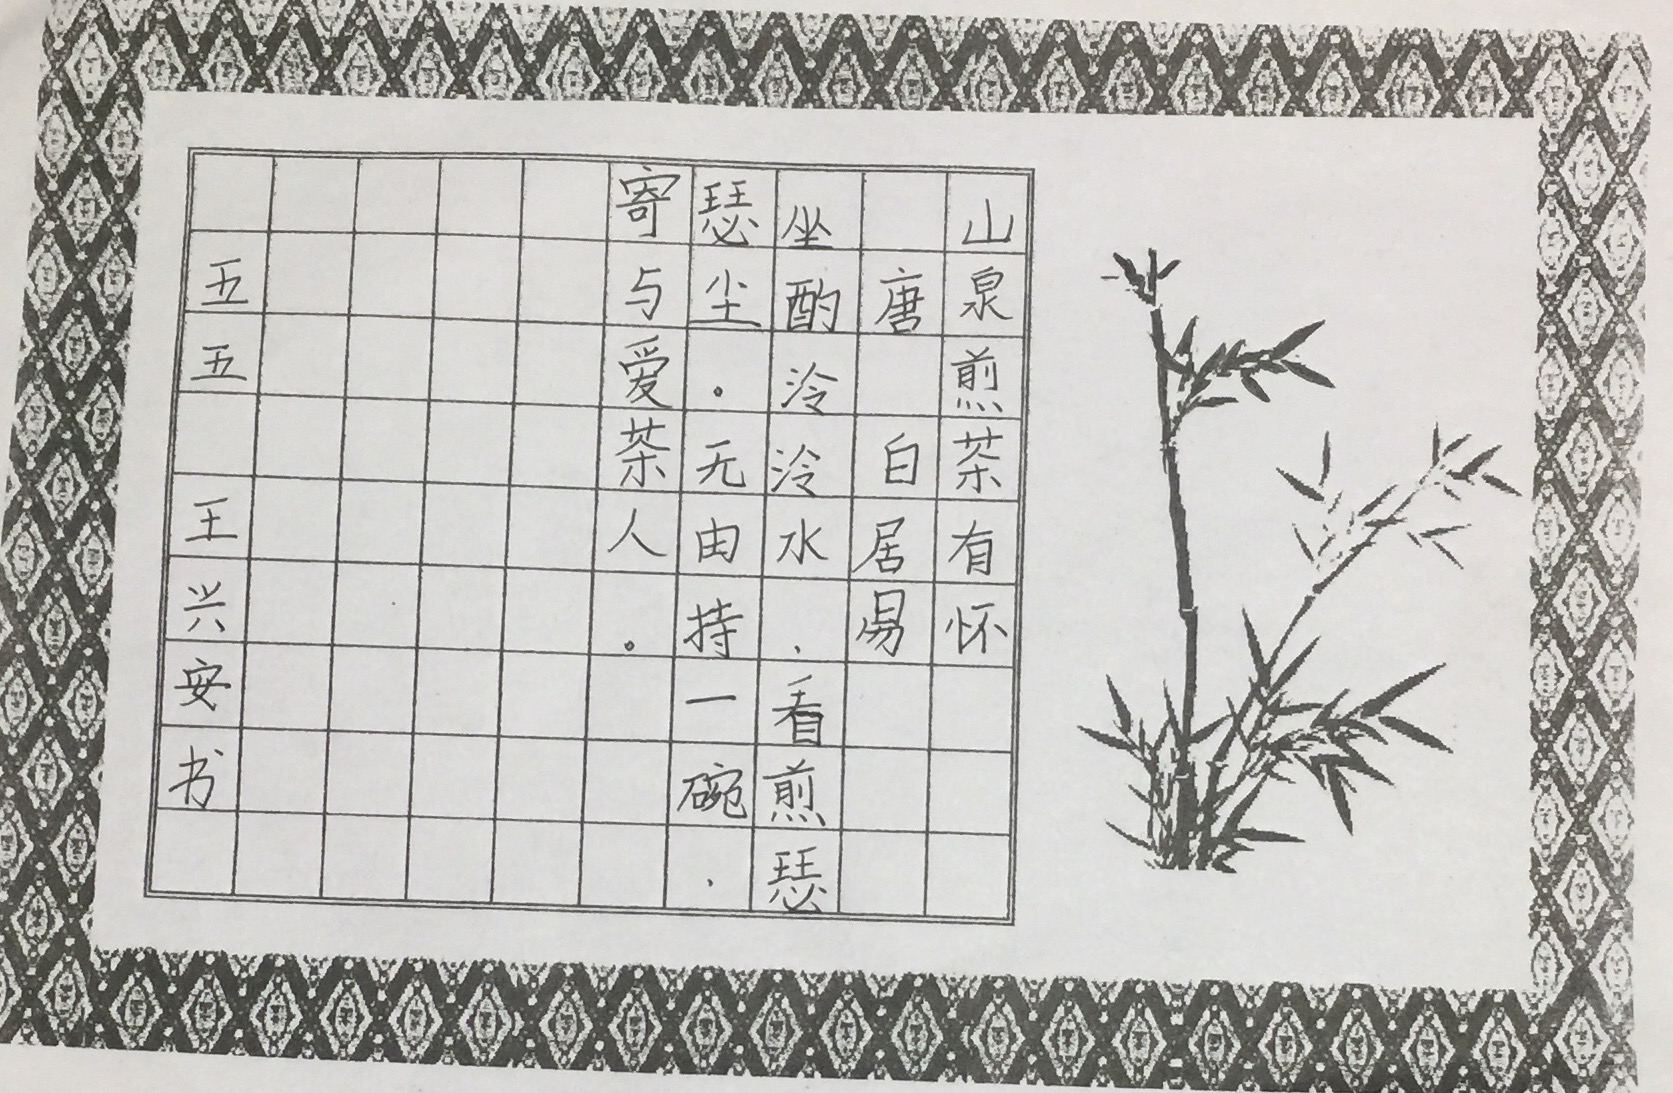 山泉煎茶有怀
唐 白居易
坐酌泠泠水，看煎瑟
瑟尘。无由持一碗，
寄与爱茶人。
五五 王兴安书